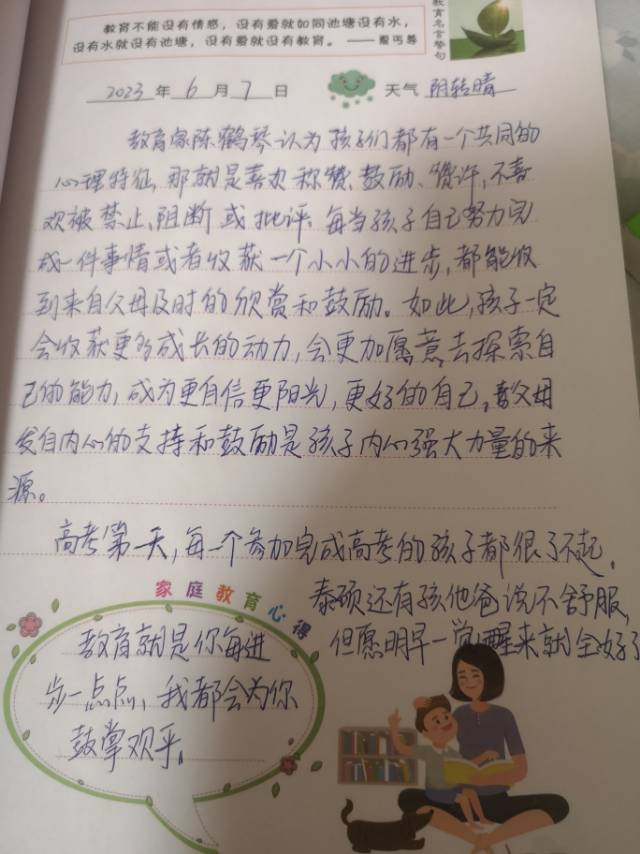 教育不能没有情感，没有爱就如同池塘没有水，
没有水就没有池塘，没有爱就没有教育。 ——夏丏尊
教育名言警句
2023年6月7日 天气 阴转晴
教育家陈鹤琴认为孩子们都有一个共同的
心理特征，那就是喜欢称赞、鼓励、赞许，不喜
欢被禁止、阻断或批评。每当孩子自己努力完
成一件事情或者收获一个小小的进步，都能收
到来自父母及时的欣赏和鼓励。如此，孩子一定
会收获更多成长的动力，会更加愿意去探索自
己的能力，成为更自信更阳光，更好的自己，父母
发自内心的支持和鼓励是孩子内心强大力量的来
源。
高考第一天，每一个参加完成高考的孩子都很了不起。
泰硕还有孩他爸说不舒服，
但愿明早一觉醒来就全好了
家庭教育心得
教育就是你每进
步一点点，我都会为你
鼓掌欢乎。